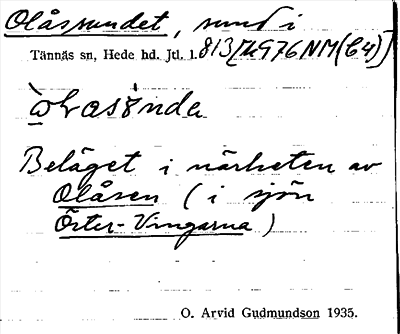 Olåssundet, sund i
Tännäs sn, Hede hd. Jtl. l. 813[UG76NM(C4)]
Beläget i närheten av
Olåsen (i sjön
Öster-Vingarna)
O. Arvid Gudmundson 1935.